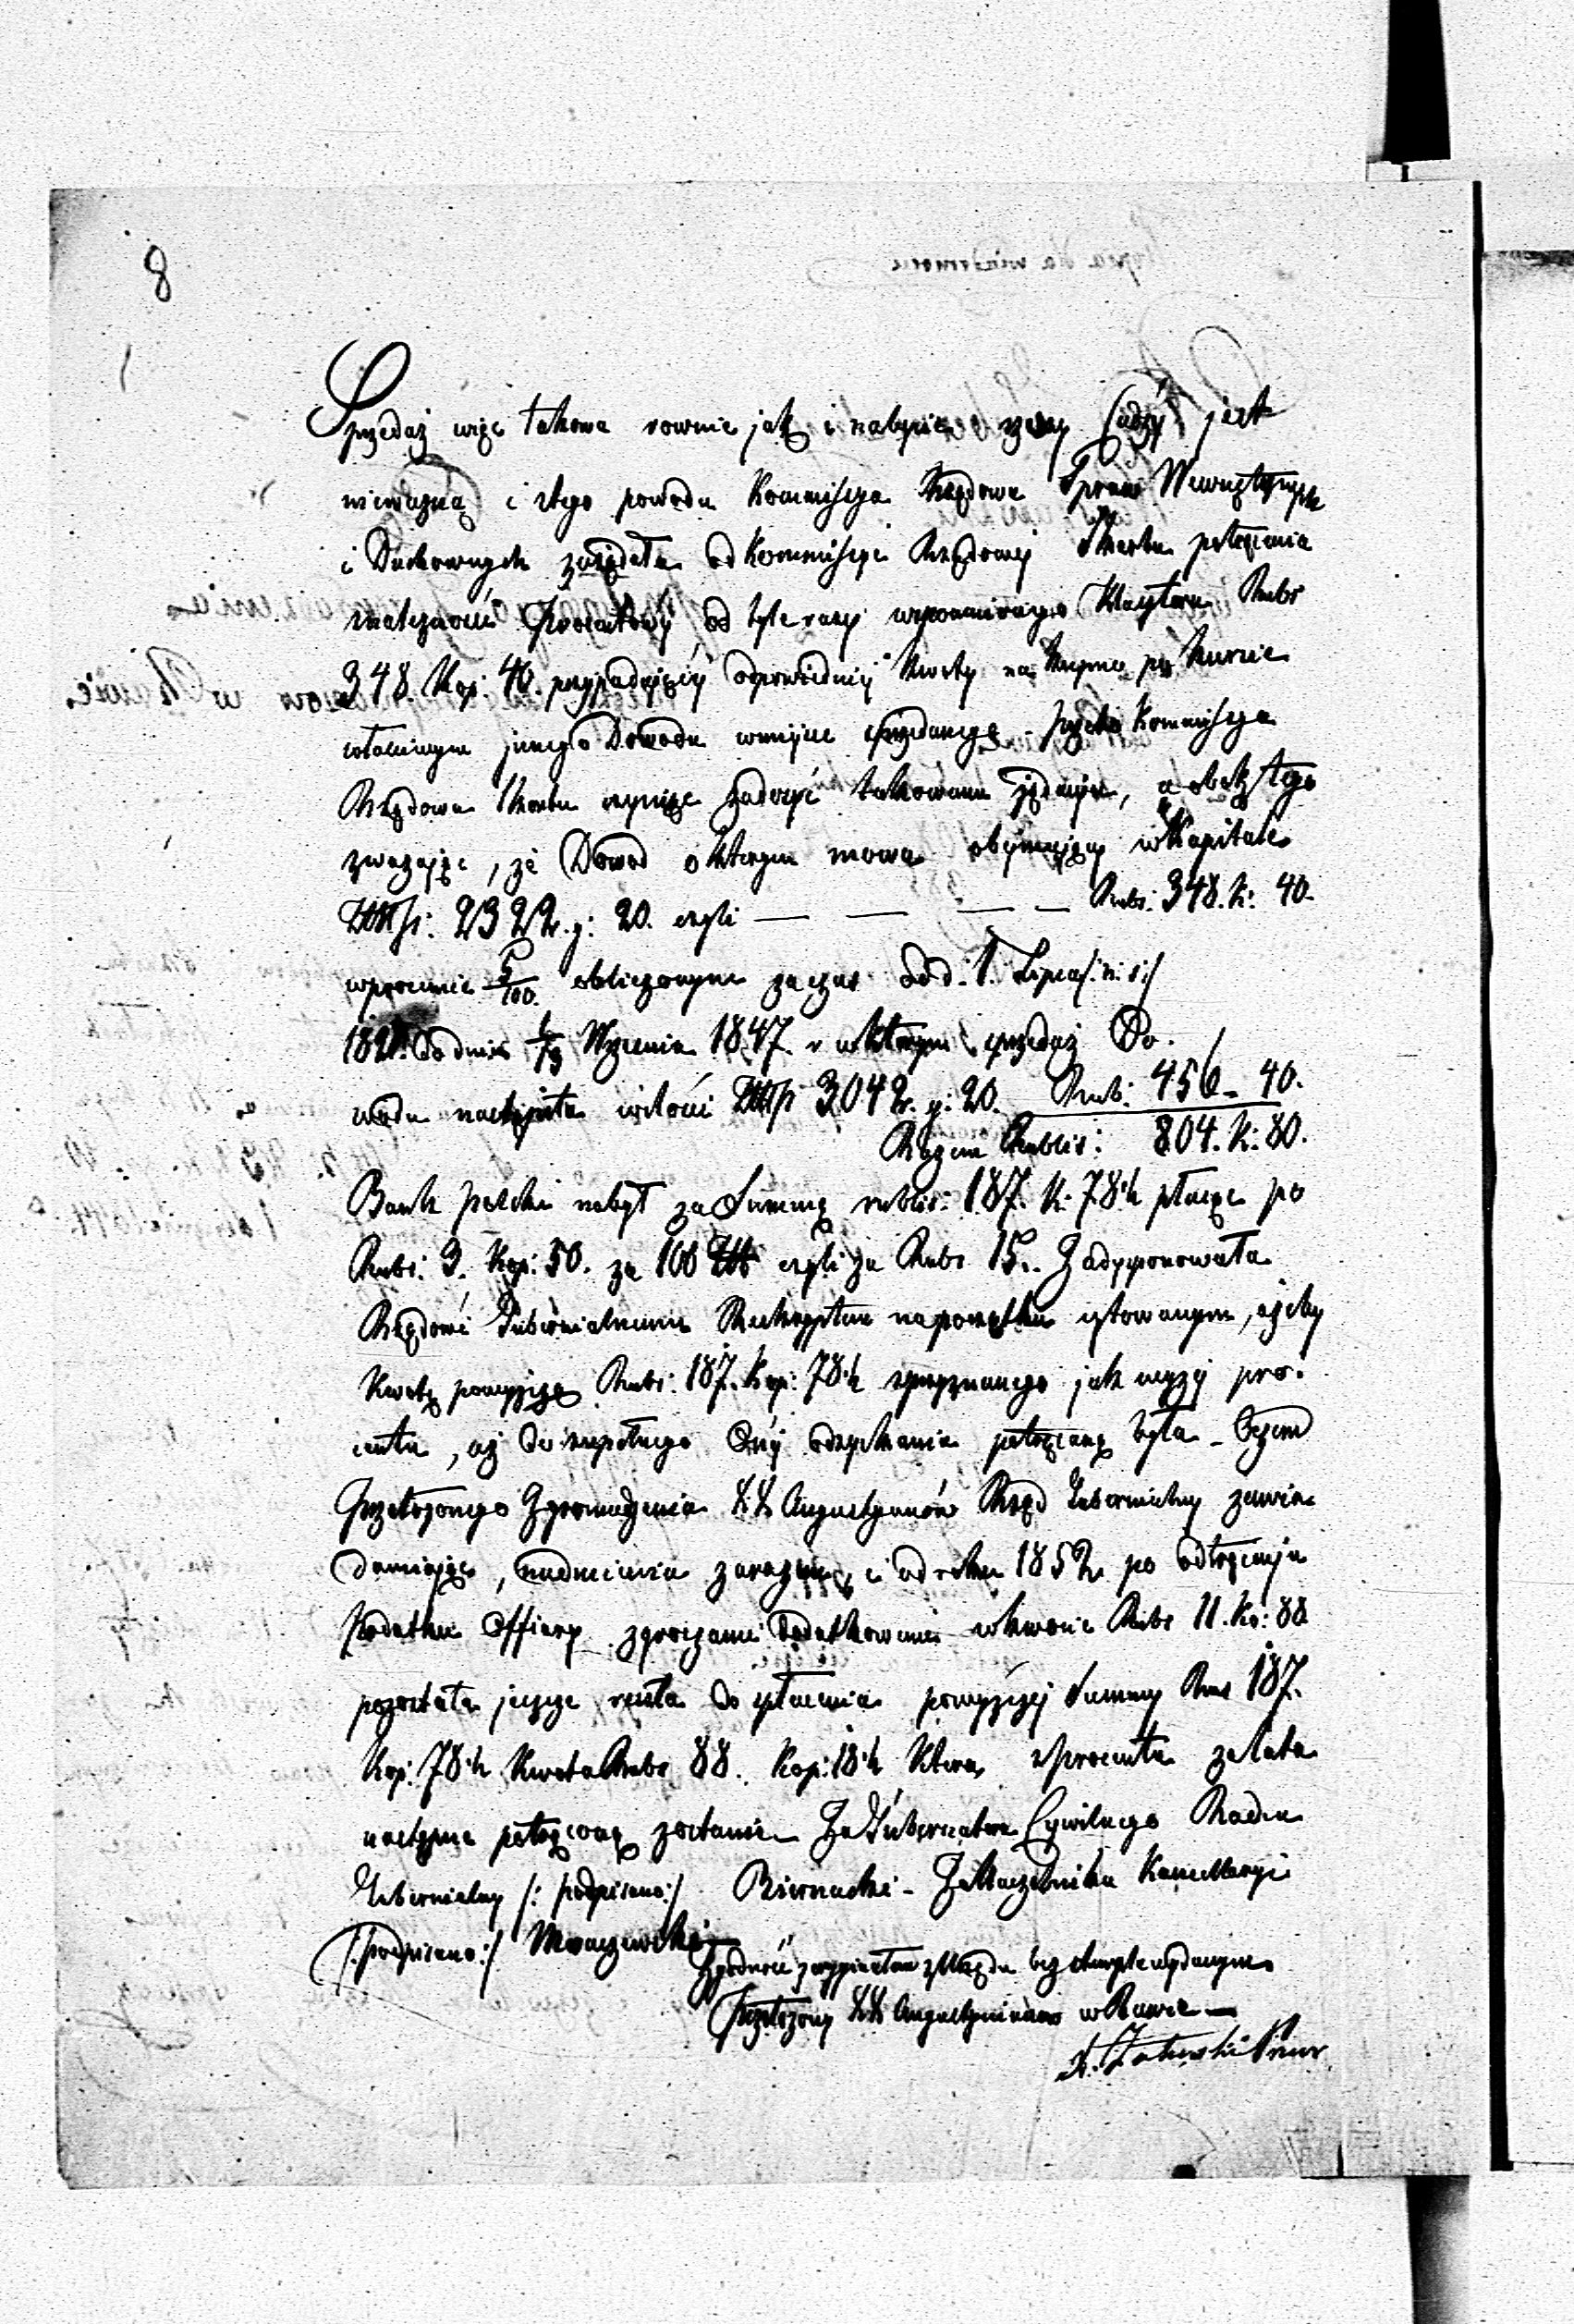 8
Sprzedaż więc takowa rownie jak i nabycie rzeczy Cudzéy jest
nieważną i ztego powodu Kommissya Rządowa Spraw Wewnętrznych
i Duchownych zażądała od Kommissyi Rządowéj Skarbu potrącenia
należności od tyle razy wspomnionego Klasztoru Rubs
348. Kop: 40. przypadającéy odpowiedniéj kwoty na kupno po kursie
właściwym innego Dowodu wmiejsce sprzedanego. Jeżeli Kommissya
Rządowa Skarbu czyniąc zadosyć takowemu żądaniu, a obok tego
zważając, że Dowod o którym mowa obejmujący w Kapitale
Złłp: 2322. g: 20. czyli — — — — Rubs: 348. K: 40.
wprocencie 5/100. obliczonym zaczas od d. 1. Lipca /: n: s:/
1821. do dnia 1/13 Stycznia 1847. r wktórym sprzedaż Do-
wodu nastąpiła wilości Złłp 3042. g: 20. Rub: 456 - 40.
Razem Rublis: 804. K: 80.
Bank polski nabył za Summę rublis: 187. K. 78½ płacąc po
Rubs: 3. Kop: 50. za 100 Złł czyli za Rubs 15. Zadysponowała
Rządowi Gubernialnemu Reskryptem napoczątku cytowanym, ażeby
Kwotę powyższą Rubs: 187. Kop: 78½ zprzyznanego jak wyżéj pro-
centu, aż do zupełnego Onéj odzyskania potrąconą była - Oczem
Przełożonego Zgromadzenia XX Augustyanów Rząd Gubernialny zawia-
damiając, nadmienia zarazem, i od roku 1852 po odtrącenia
Podatku Offiary zprocęami Dodatkowemi wkwocie Rubs 11. Ko: 88
pozostała jeszcze reszta do spłacenia powyższéj Summy Rus 187.
Kop: 78½ Kwota Rubs 88. Kop: 18½ Która, zprocentu zalata
następne potrąconą zostanie - Za Gubernatora Cywilnego Radca
Gubernialny /: podpisano:/ Biernacki - Za Naczelnika Kancellaryi
/: podpisano:/
Zgodność zoryginałem zUrzędu bez stempla wydanym
Przełożony XX Augustynianów w Rawie —